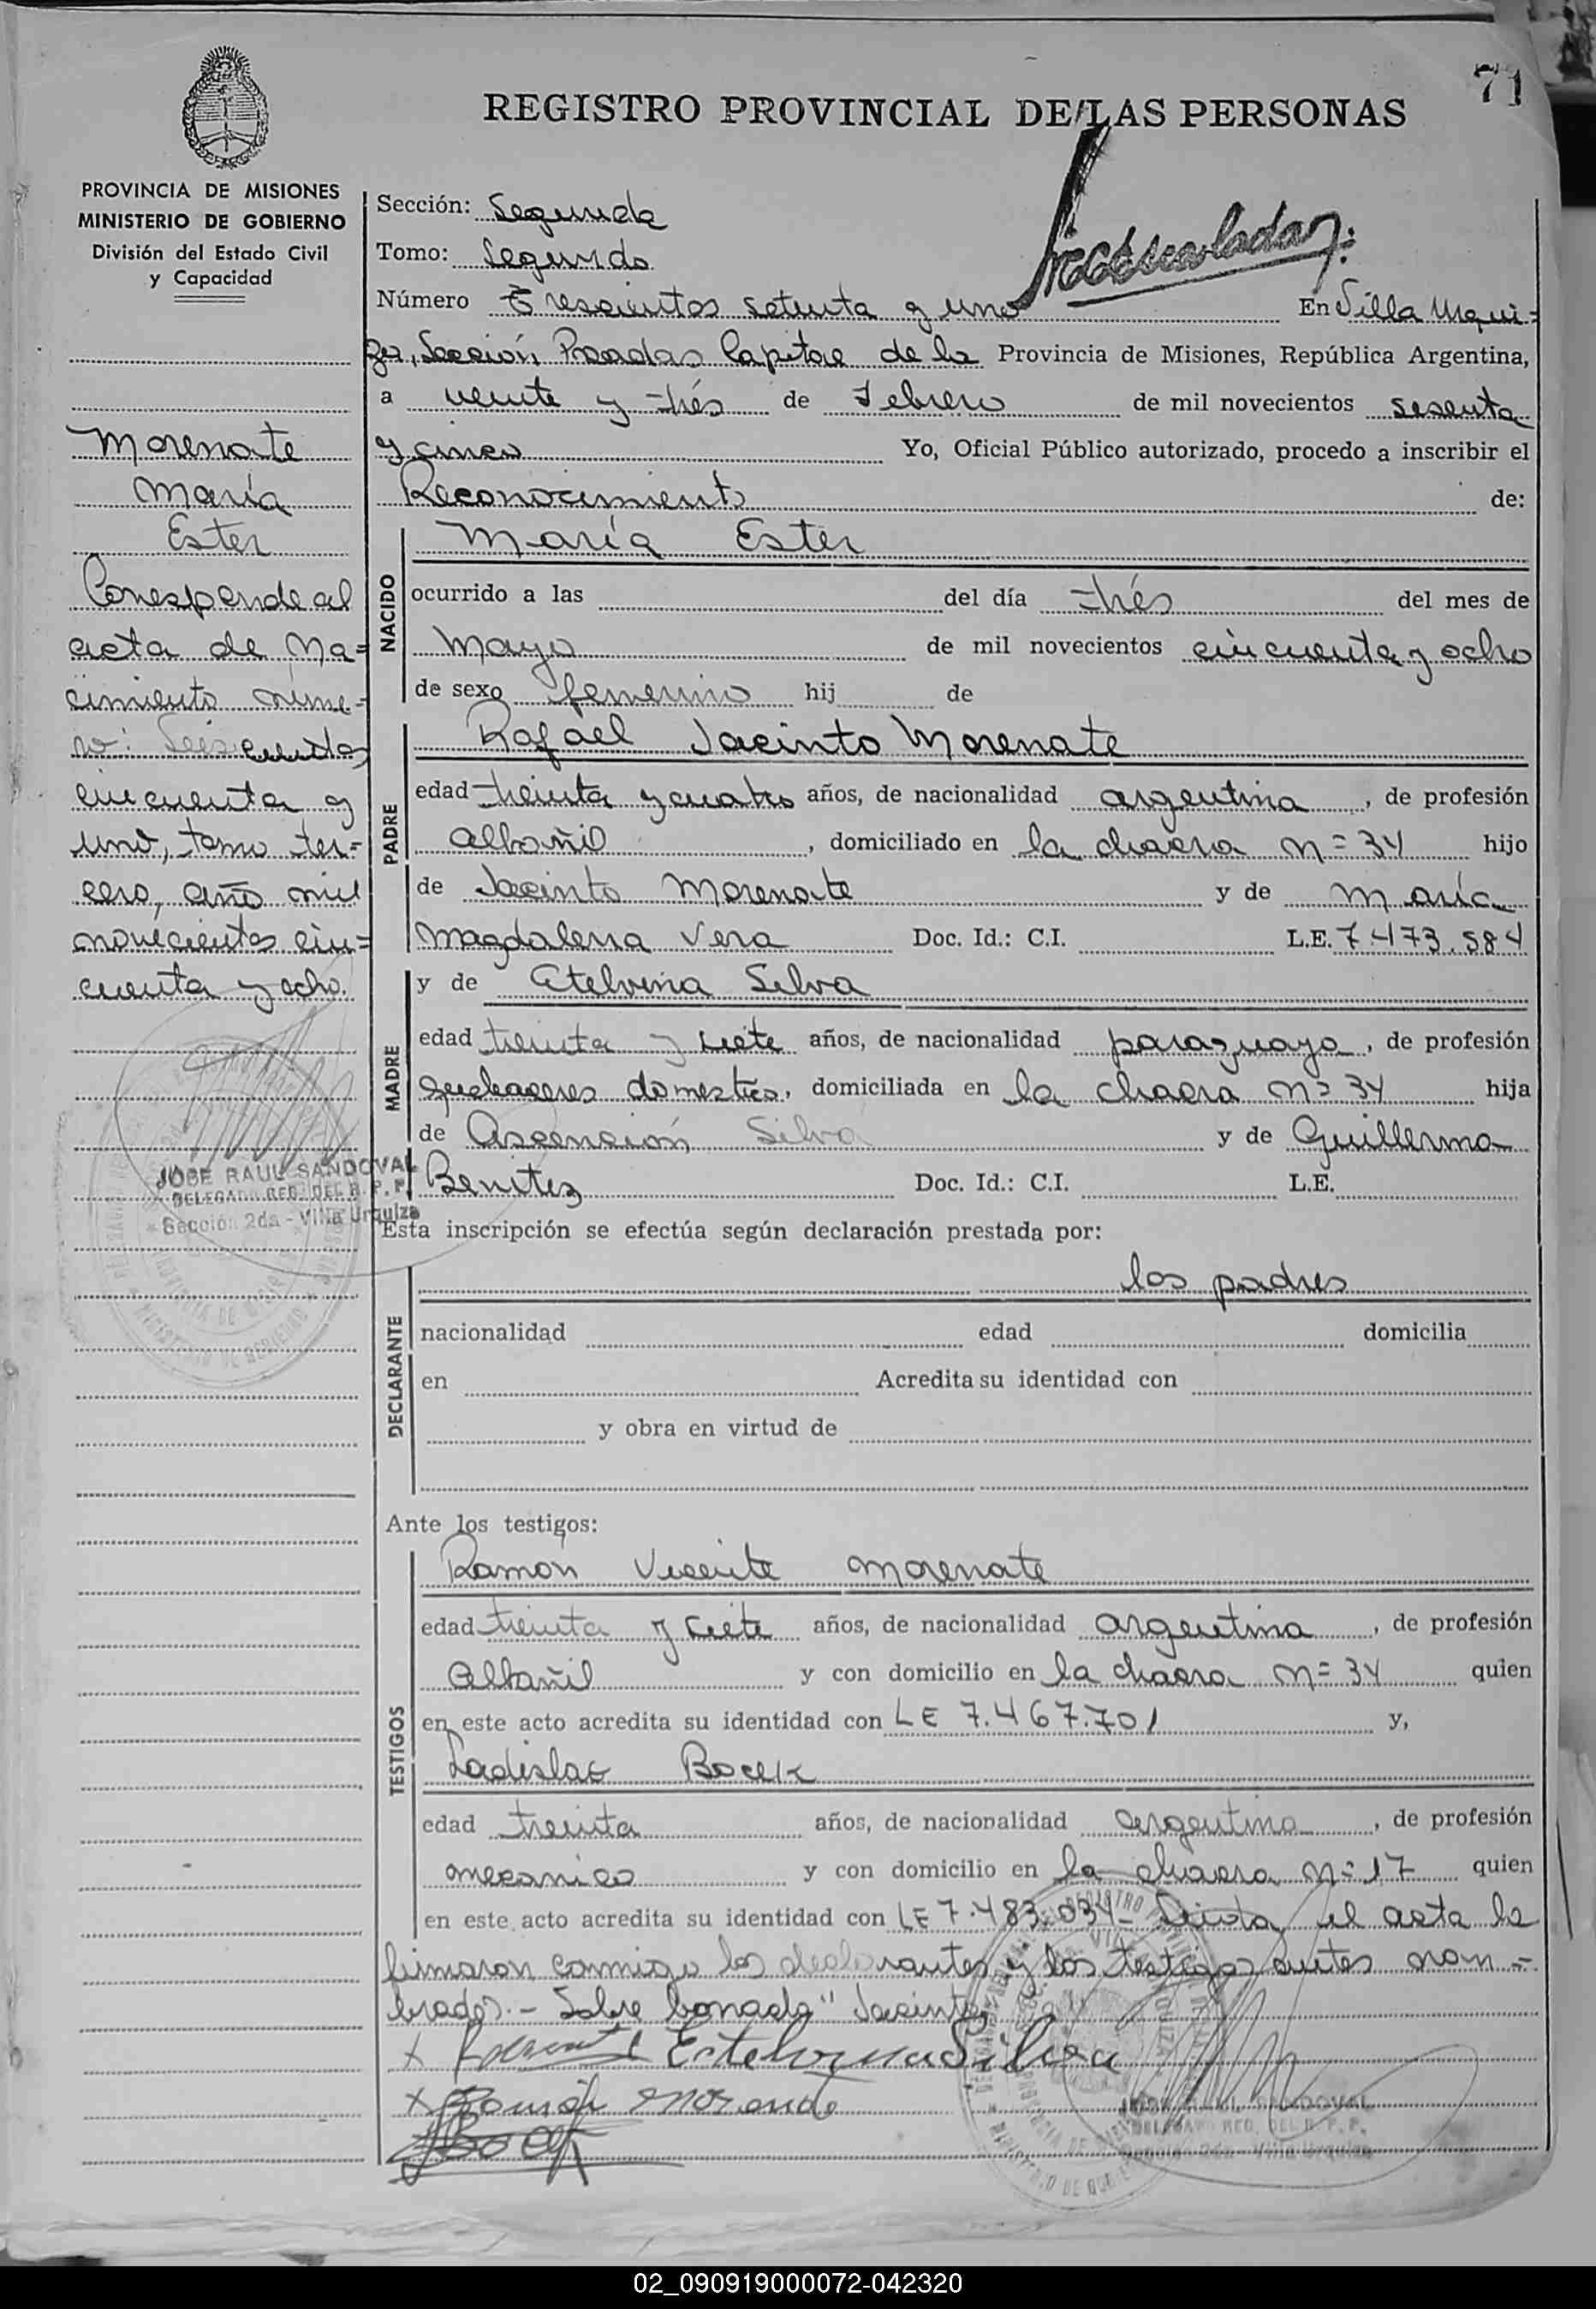 71
REGISTRO PROVINCIAL DE LAS PERSONAS
PROVINCIA DE MISIONES
MINISTERIO DE GOBIERNO
División del Estado Civil
y Capacidad
Morenate
María
Ester
Corresponde al
acta de Na=
cimiento núme-
ro: Seiscientos
cincuenta y
uno, tomo ter=
cero, año mil
novecientos cin=
cuenta y ocho.
JOSE RAUL SANDOVAL
DELEGADO REG. DEL R. P. P.
Sección 2da - Villa Urquiza
Sección: Segunda
Tomo: Segundo
Número Trescientos setenta y uno En Villa Urqui=
za, Sección Posadas Capital de la Provincia de Misiones, República Argentina,
a veinte y trés de Febrero de mil novecientos sesenta
y cinco Yo, Oficial Público autorizado, procedo a inscribir el
Reconocimiento de:
NACIDO
María Ester
ocurrido a las del día trés del mes de
Mayo de mil novecientos cincuenta y ocho
de sexo femenino hij de
PADRE
Rafael Jacinto Morenate
edad treinta y cuatro años, de nacionalidad argentina, de profesión
albañil, domiciliado en la chacra n= 34 hijo
de Jacinto Morenate y de María
Magdalena Vera Doc. Id.: C.I. L.E. 7.473.584
MADRE
y de Etelvina Silva
edad treinta y siete años, de nacionalidad paraguaya, de profesión
quehaceres domestics, domiciliada en la chacra n= 34 hija
de Ascención Silva y de Guillerma
Benitez Doc. Id.: C.I. L.E.
Esta inscripción se efectúa según declaración prestada por:
DECLARANTE
los padres
nacionalidad edad domicilia
en Acredita su identidad con
y obra en virtud de
Ante los testigos:
TESTIGOS
Ramón Vicente Morenate
edad treinta y siete años, de nacionalidad argentina, de profesión
Albañil y con domicilio en la chacra n= 34 quien
en este acto acredita su identidad con LE 7.467.701 y,
Ladislao Bocek
edad treinta años, de nacionalidad argentina, de profesión
mecanico y con domicilio en la chacra n= 17 quien
en este acto acredita su identidad con LE 7.483.034- Leida el acta la
firmaron conmigo los declarantes y los testigos antes nom=
brados.- Sobre borrado" Jacinto
Estelvina Silva
Ramón Morenate
JOSE RAUL SANDOVAL
DELEGADO REG. DEL R. P. P.
Sección 2da - Villa Urquiza
02_090919000072-042320